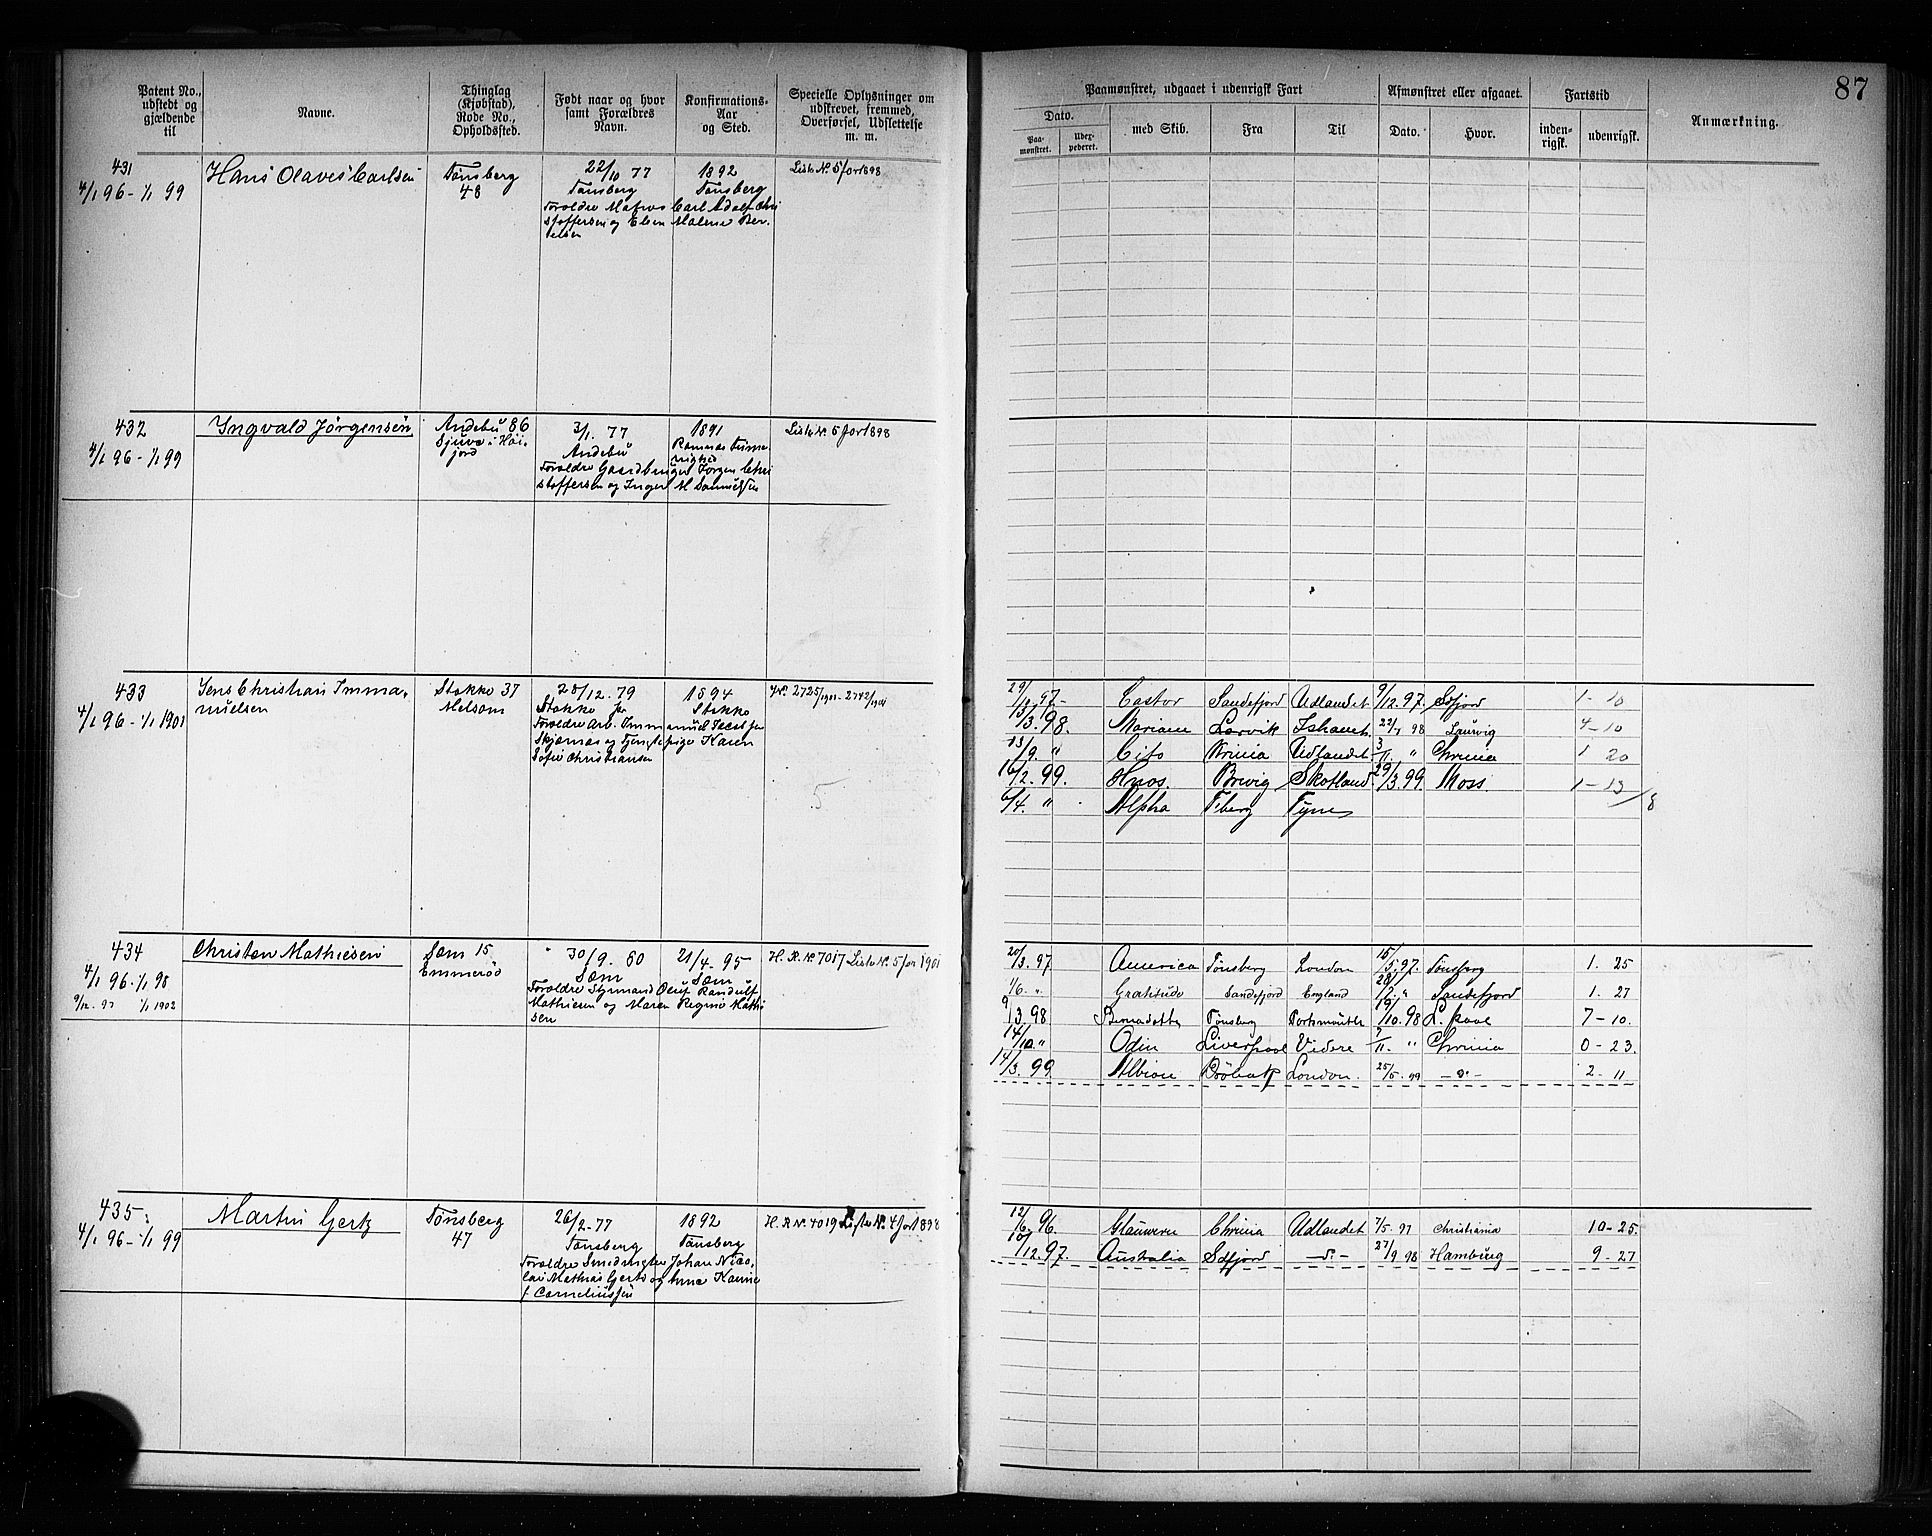 87
Patent No., udstedt og gjældende til
Navne.
Thinglag (Kjøbstad), Rode No., Opholdsted.
Født naar og hvor samt Forældres Navn.
Konfirmations-Aar og Sted.
Specielle Oplysninger om udskrevet, fremmed, Overførsel, Udslettelse m. m.
Paamønstret, udgaaet i udenrigsk Fart
Afmønstret eller afgaaet.
Fartstid
Anmærkning.
Dato.
med Skib.
Fra
Til
Dato.
Hvor.
inden-rigsk.
udenrigsk.
Paa-mønstret.
Uder-peberet.
431
4/1 96 - 1/1 99
Hans Olaves Carlsen
Tønsberg
48
22/10 77
Tønsberg
1892
Tønsberg
Forældre Matros Carl Adolf Chri
stoffersen og Elen Malene Ber-
Liste No. 5 for 1898
432
4/1 96 - 1/1 99
Ingvald Jørgensen
Andebu 86
Sjuve i Høi-
jord
3/1. 77
Andebu
1891
Ramnæs
Forældre Gaardbruger Jørgen Chri
stoffersen og Inger M Samuelsen
Liste No. 5 for 1898
433
4/1 96 - 1/1 1901
Jens Christian Imma-
nuelsen
Stokke 37
Melsom
28/12. 79
Stokke
1894
Stokke
Forældre Arb. Imm anuel
Skjærnæs og Tjenstepige Karen
Sofie Christiansen
No. 2725/1901 - 2742/1901
5
29/ 97 - Castor Sandefjord Udlandet 9/12 97. Sdfjord 1 - 10
/3. 98. Mariane Larvik Ishavet 22/ 98 Laurvig 4 - 10
13/9. " Cito Krinia Udlandet 3/11. " Chrinia 1 20
16/2. 99. Brevig Skotland 29/3. 99. Moss 1 - 13
/8
6/4. " Alpha T'berg Tyne
434
4/1 96 - 1/1 98
9/12. 97 1/1 1902
Christen Mathiesen
Sæm 15
Emmerød
30/9. 80
Sæm
21/4. 95
Sæm
Forældre Styrmand Oluf Randulf
Mathiesen og Maren Regine Mathi
sen
H. R. No 7017 Liste No. 5 for 1901
20/3. 97 America Tønsberg London 15/5. 97. Tønsberg 1. 25
1/6. " Gratitude Sandefjord England 28/7. " Sandefjord 1. 27
9/3. 98 Bernadotte Tønsberg Portsmouth 19/10. 98 L. pool 7 - 10.
14/10. " Odin Liverpool Videre 7/11. " Chrinia 0 - 23.
14/3. 99 Albion Drøbak London. 25/5. 99 - " - 2 - 11
435
4/1 96 - 1/1 99
Martin Gertz
Tønsberg
47
26/2. 77
Tønsberg
1892
Tønsberg
Forældre Smedmester Johan Nico-
lai Mathias Gertz og Anne Karine
f. Corneliussen
H. R No. 4019 Liste No. 4 for 1898
12/6. 96. Chrinia Udlandet 7/5. 97 Christiania 10 - 25.
10/12. 97. Australia Sdfjord - " - 27/9. 98 Hamburg 9 - 27